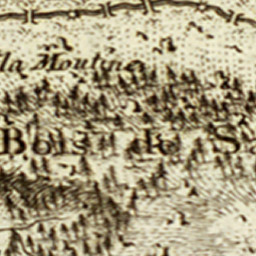 la Moutine
Bois de S